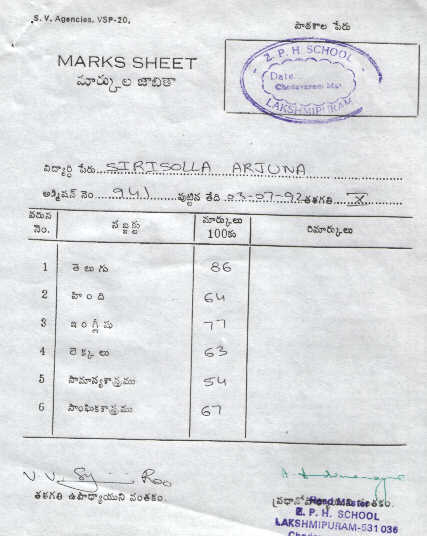 S. V. Agencies, VSP-20.
పాఠశాల పేరు
MARKS SHEET
మార్కుల జాబితా
Z. P. H. SCHOOL
Date
Chedavaram Md
LAKSHMIPURAM
విద్యార్థి పేరు SIRISOLLA ARJUNA
అడ్మిషన్ నెం. 941 పుట్టిన తేది 03-07-92 తరగతి X
వరుస నెం. సబ్జక్టు మార్కులు 100కు రిమార్కులు
1 తెలుగు 86
2 హింది 64
3 ఇంగ్లీషు 77
4 లెక్కలు 63
5 సామాన్యశాస్త్రము 54
6 సాంఘికశాస్త్రము 67
తరగతి ఉపాధ్యాయుని సంతకం.
ప్రధానోపాధ్యాయుని సంతకం.
Head Master
Z. P. H. SCHOOL
LAKSHMIPURAM-531 036